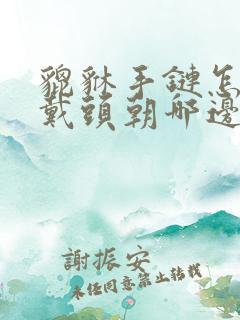 貔貅手鏈怎
戴頭朝哪邊
謝振安
未經同意禁止轉載